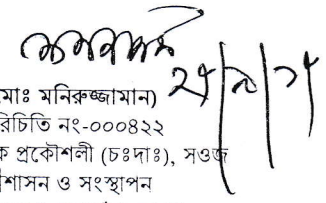 মোঃ মনিরুজ্জামান)
রিচিতি নং-০০০৪২২
ক প্রকৌশলী (চঃদাঃ), সওজ
শাসন ও সংস্থাপন